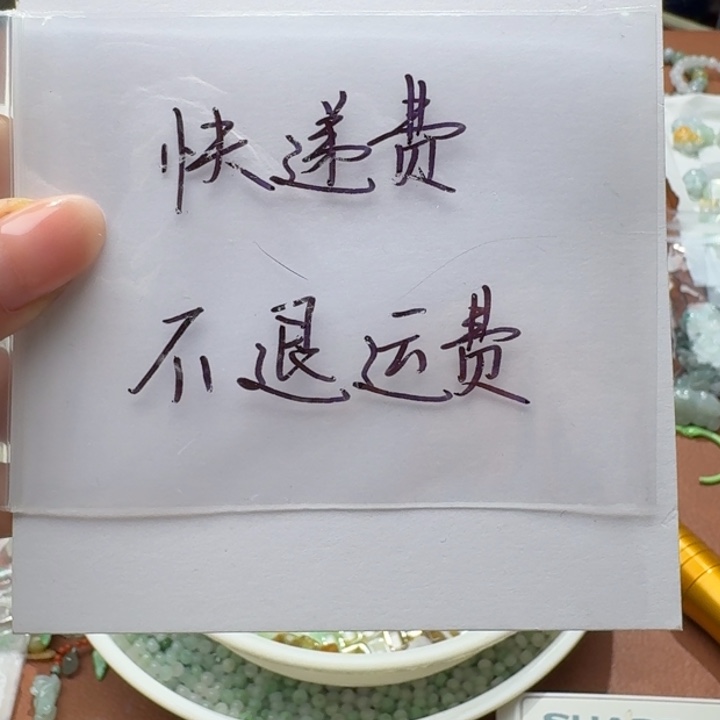 快递费
不退运费